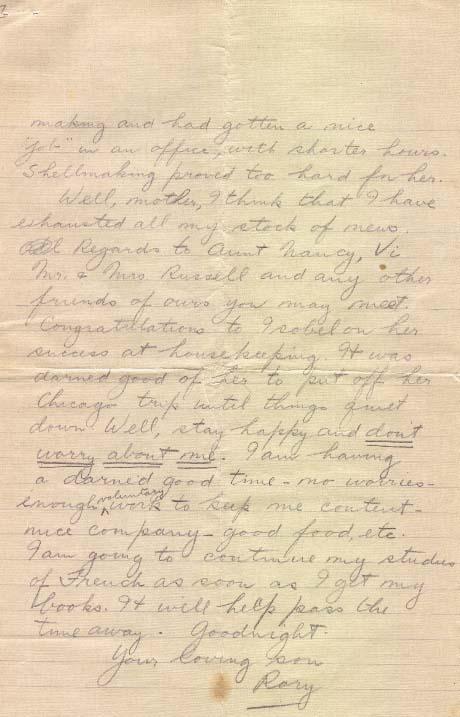 making and had gotten a nice
"job" in an office, with shorter hours.
Shellmaking proved too hard for her.
Well, mother, I think that I have
exhausted all my stock of news.
Regards to Aunt Nancy, Vi
Mr. & Mrs. Russell and any other
friends of ours you may meet.
Congratulations to Isobel on her
success at housekeeping. It was
darned good of her to put off her
Chicago trip until things quiet
down. Well, stay happy and don't
worry about me. I am having
a darned good time – no worries –
enough voluntary work to keep me content –
nice company – good food, etc.
I am going to continue my studies
of French as soon as I get my
books. It will help pass the
time away. Goodnight.
Your loving son
Rory